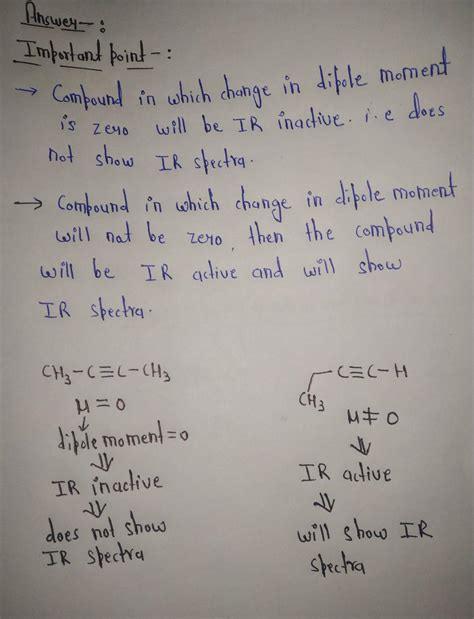 Answer-:
Important point-:
→ Compound in which change in dipole moment
is zero will be IR inactive. i.e does
not show IR spectra.
→ Compound in which change in dipole moment
will not be zero, then the compound
will be IR active and will show
IR spectra.
CH3-C≡C-CH3
μ=0
↓
dipole moment=0
⇓
IR inactive
⇓
does not show
IR spectra
CH3-C≡C-H
μ≠0
⇓
IR active
⇓
will show IR
spectra